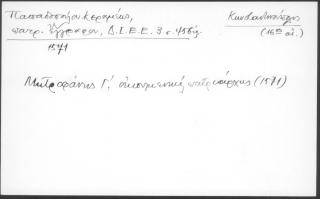 Παπαδόπουλος Κεραμέας,
πατρ. ἔγγραφον, Δ.Ι.Ε.Ε. 3 σ. 456 ἑξ.
1571
Κωνσταντινούπολις
(16ος αἰ.)
Μητροφάνης Γ΄, οἰκουμενικὸς πατριάρχης (1571)